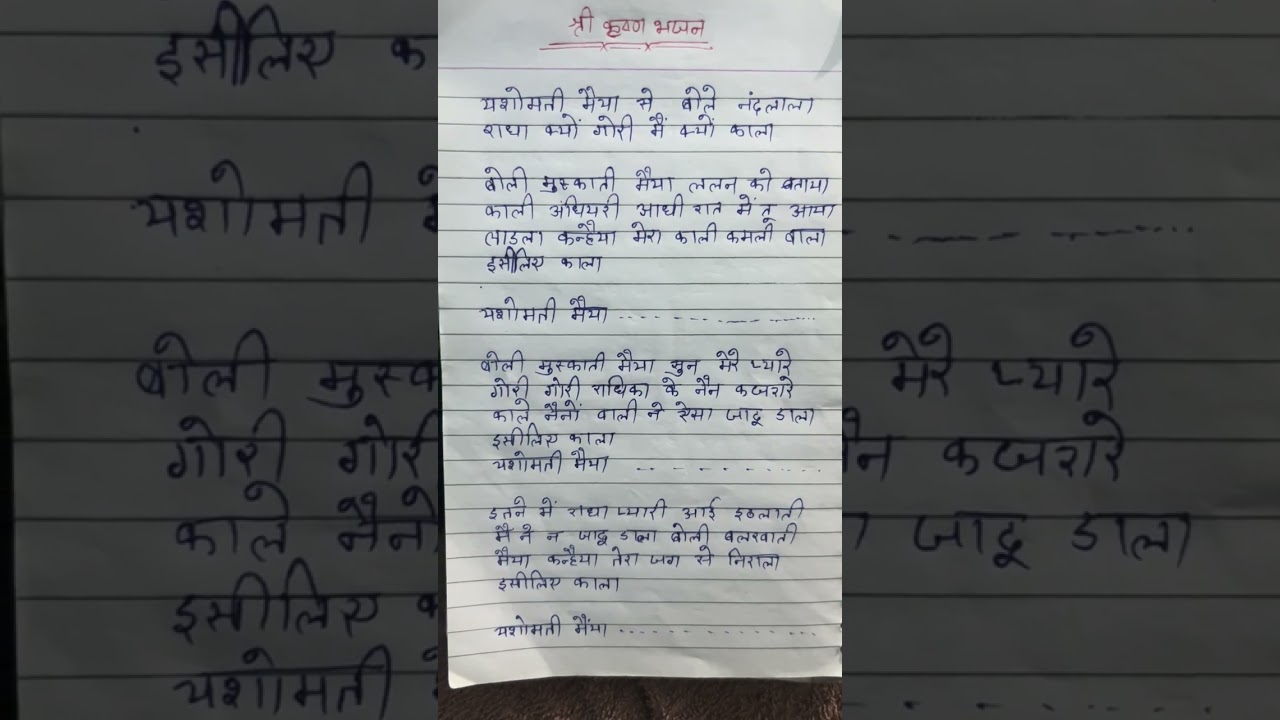 श्री कृष्ण भजन
यशोमती मैया से बोले नंदलाला
राधा क्यों गोरी मैं क्यों काला
बोली मुस्काती मैया ललन को बताया
काली अंधियरी आधी रात में तू आया
लाडला कन्हैया मेरा काली कमली वाला
इसीलिए काला
यशोमती मैया ...............
बोली मुस्काती मैया सुन मेरे प्यारे
गोरी गोरी राधिका के नैन कजरारे
काले नैनों वाली ने ऐसा जादू डाला
इसीलिए काला
यशोमती मैया ...............
इतने में राधा प्यारी आई इठलाती
मैं ने न जादू डाला बोली बलखाती
मैया कन्हैया तेरा जग से निराला
इसीलिए काला
यशोमती मैंया ...............